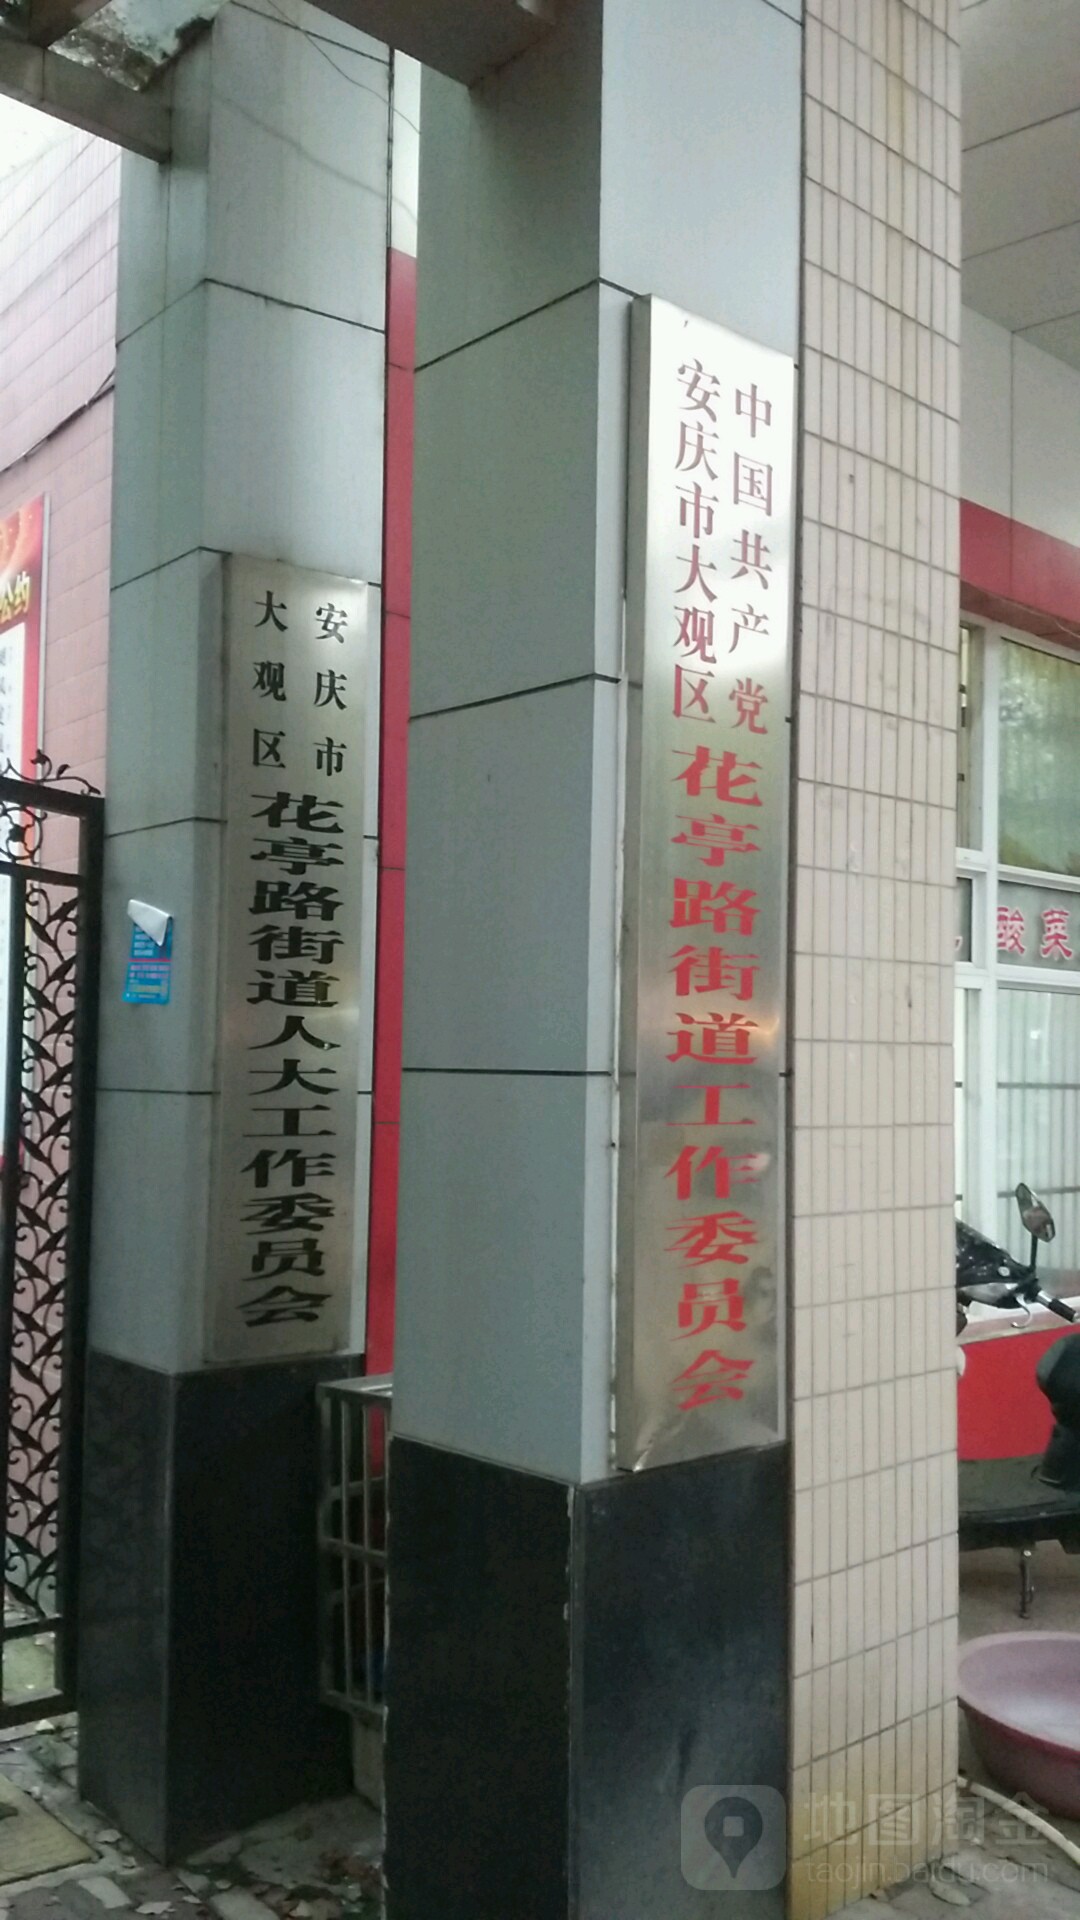 中国共产党
安庆市大观区
花亭路街道工作委员会
安庆市
大观区
花亭路街道人大工作委员会
公约
酸菜
地图淘金
taojin.baidu.com